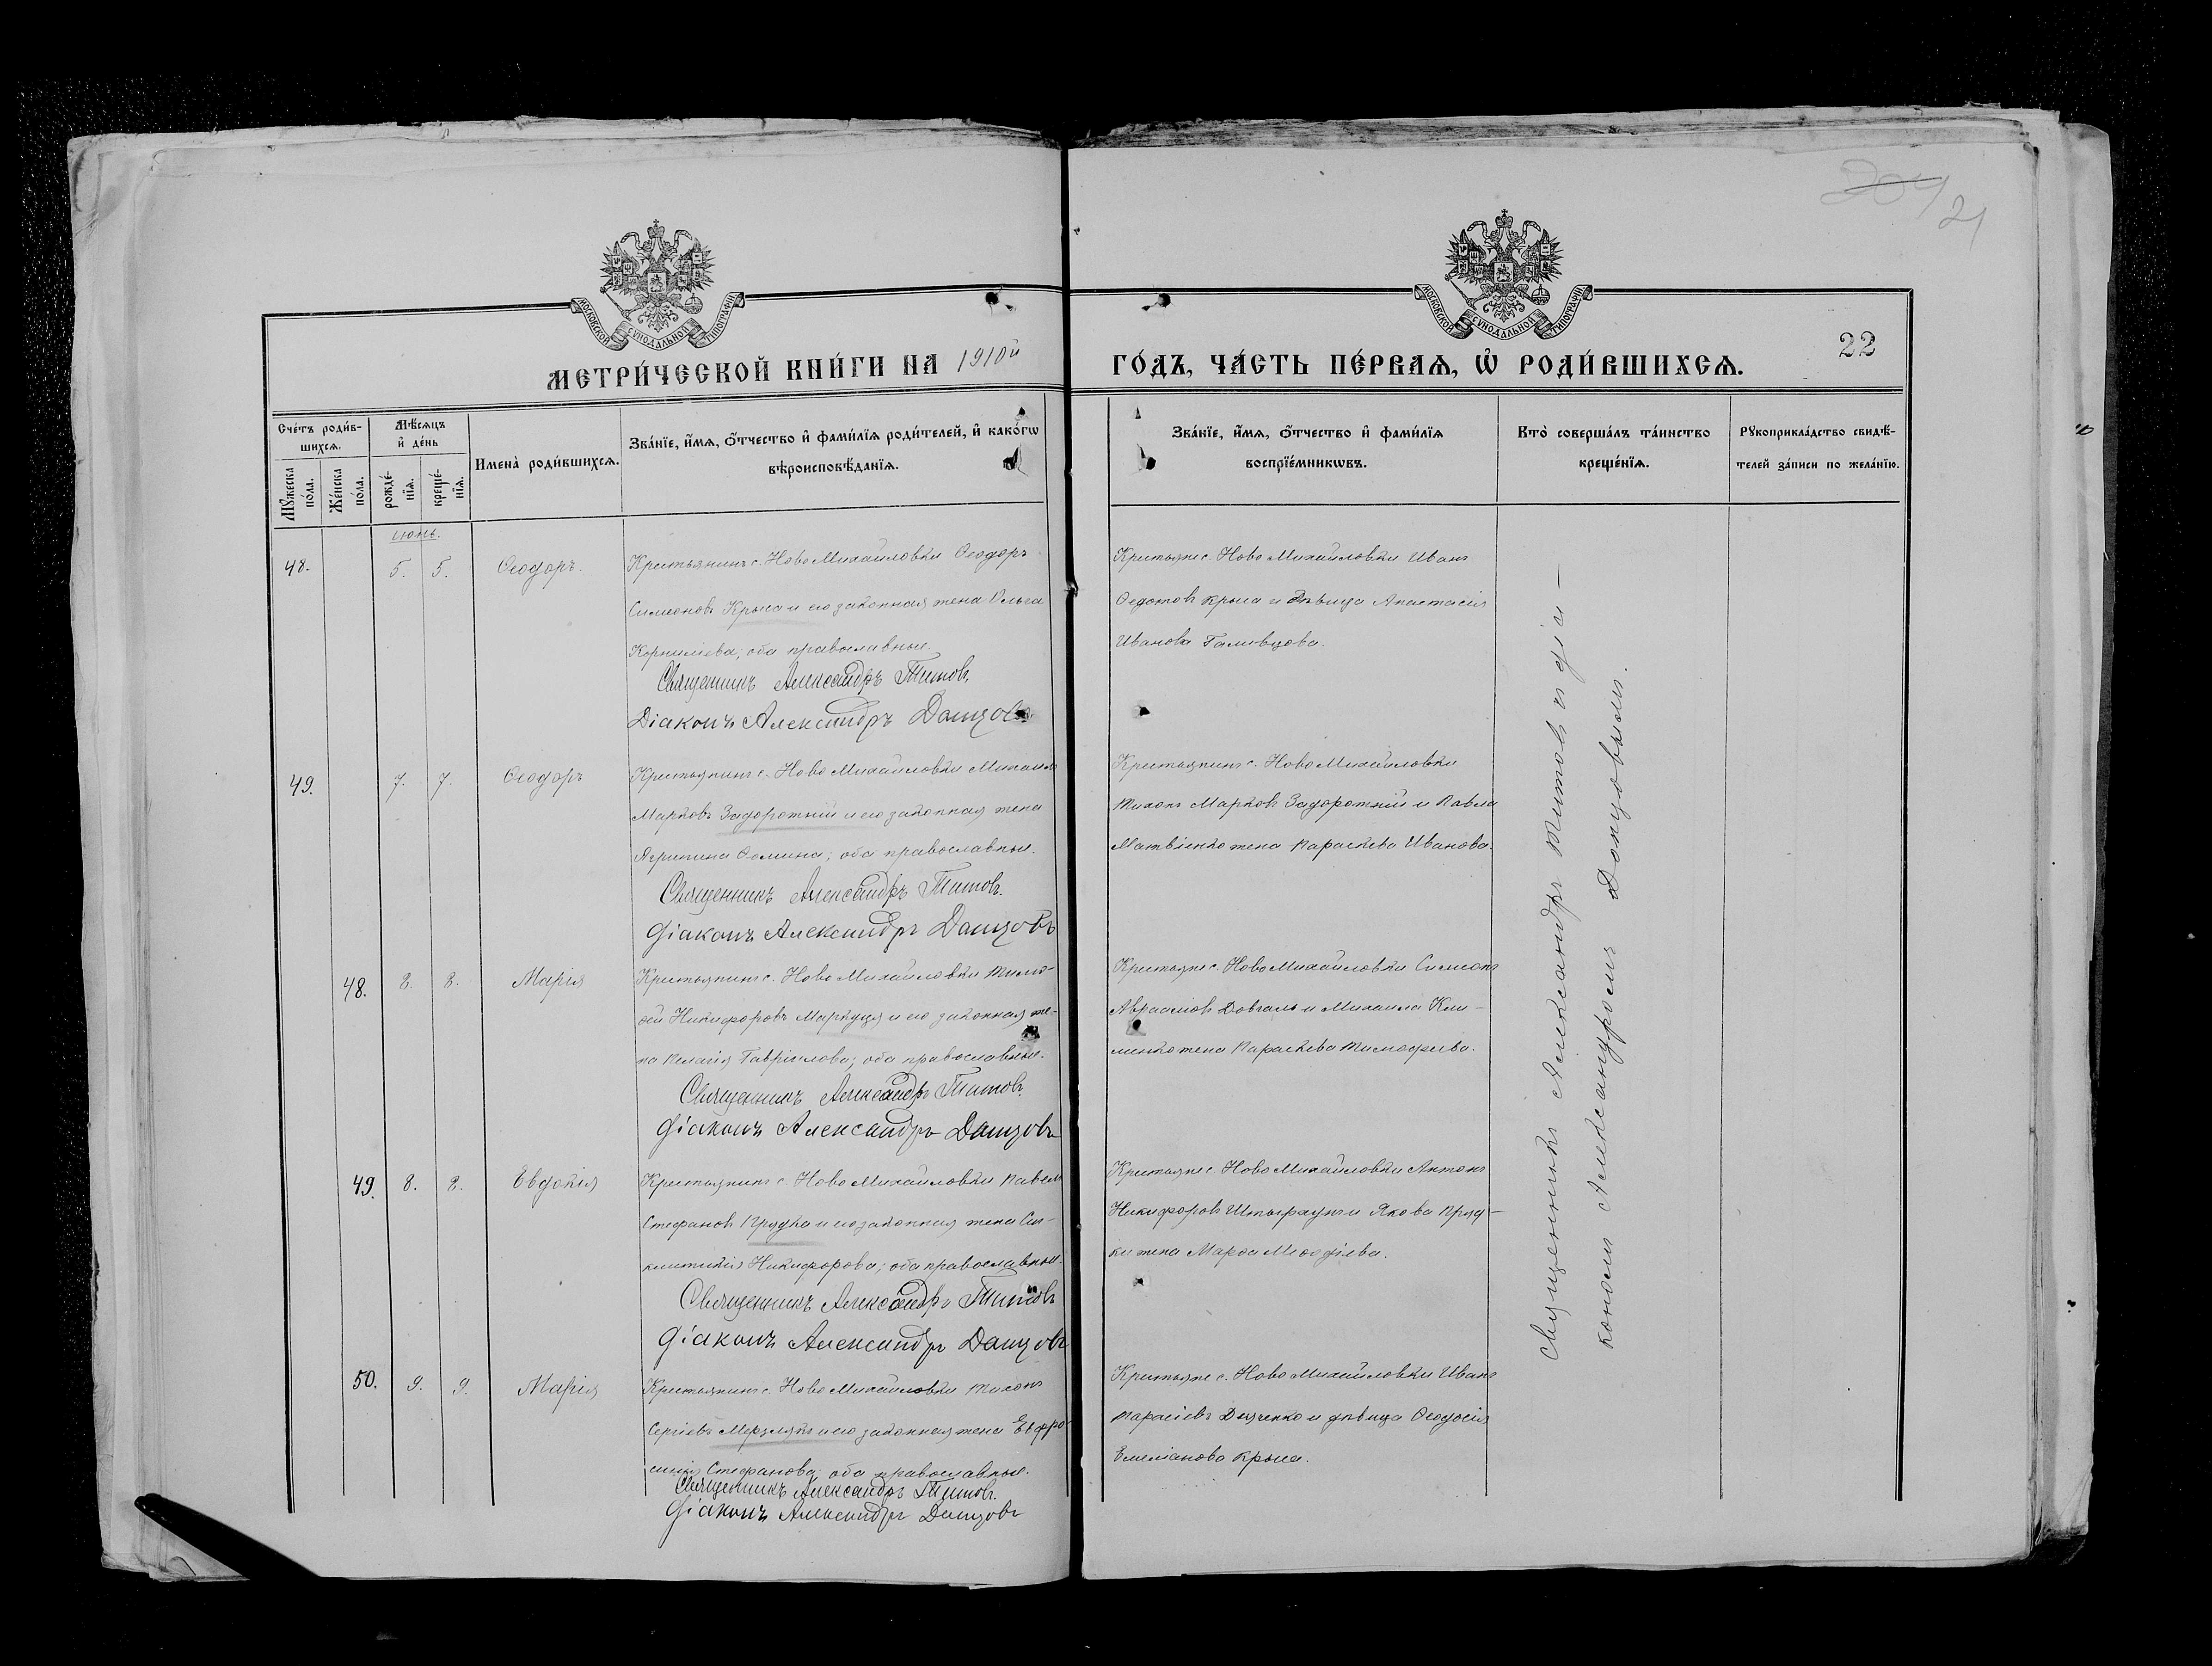 204
21
МОСКОВСКОЙ СУНОДАЛЬНОЙ ТИПОГРАФІИ
МОСКОВСКОЙ СУНОДАЛЬНОЙ ТИПОГРАФІИ
МЕТРИ́ЧЕСКОЙ КНИ́ГИ НА 1910й ГО́ДЪ, ЧА́СТЬ ПЕ́РВАѦ, Ѡ҆ РОДИ́ВШИХСѦ.
22
Сче́тъ роди́в-
шихсѧ.
Мꙋ́жеска
по́ла.
Же́нска
по́ла.
Мѣ́сѧцъ
и҆ де́нь
рожде́-
нїѧ.
креще́-
нїѧ.
Имена̀ роди́вшихсѧ.
Зва́нїе, и҆́мѧ, ѻ҆́тчество и҆ фами́лїѧ роди́телей, и҆ како́гѡ
вѣроисповѣ́данїѧ.
Зва́нїе, и҆́мѧ, ѻ҆́тчество и҆ фами́лїѧ
воспрїе́мникѡвъ.
Кто̀ соверша́лъ та́инство
креще́нїѧ.
Рꙋкоприкла́дство свидѣ́-
телей за́писи по жела́нїю.
Іюнь.
48.
5.
5.
Ѳеодоръ.
Крестьянинъ с. Ново Михайловки Ѳеодоръ
Симеоновъ Крыса и его законная жена Ольга
Корнилiева; оба православные.
Священникъ Александръ Титовъ.
Діаконъ Александръ Донцовъ
Крестьяне с. Ново Михайловки Иванъ
Ѳедотовъ Крыса и дѣвица Анастасія
Иванова Голивцова.
49.
7.
7.
Ѳеодоръ
Крестьянинъ с. Ново Михайловки Михаилъ
Марковъ Задорожній и его законная жена
Агрипина Ѳомина; оба православные.
Священникъ Александръ Титовъ.
Діаконъ Александръ Донцовъ
Крестьянинъ с. Ново Михайловки
Тихонъ Марковъ Задорожній и Павла
Матвіенко жена Параскева Иванова.
48.
8.
8.
Марія
Крестьянинъ с. Ново Михайловки Тимо-
ѳей Никифоровъ Маркуця и его законная же-
на Пелагія Гавріилова; оба православные.
Священникъ Александръ Титовъ.
Діаконъ Александръ Донцовъ
Крестьяне с. Ново Михайловки Симеонъ
Авраамовъ Довгаль и Михаила Кли-
менко жена Параскева Тимофеева.
49.
8.
8.
Евдокія
Крестьянинъ с. Ново Михайловки Павелъ
Стефановъ Прудка и его законная жена Син-
клитикія Никифорова; оба православные.
Священникъ Александръ Титовъ
Діаконъ Александръ Донцовъ
Крестьяне с. Ново Михайловки Антонъ
Никифоровъ и Якова Пруд-
ки жена Марѳа
50.
9.
9.
Марія
Крестьянинъ с. Ново Михайловки Тихонъ
Сергіевъ Мерзлякъ и его законная жена Евфро-
синія Стефанова; оба православные.
Священникъ Александръ Титовъ.
Діаконъ Александръ Донцовъ
Крестьяне с. Ново Михайловки Иванъ
Тарасіевъ Дядченко и дѣвица Ѳеодосія
Емеліанова Крыса.
Священникъ Александръ Титовъ и діа-
кономъ Александромъ Донцовымъ.